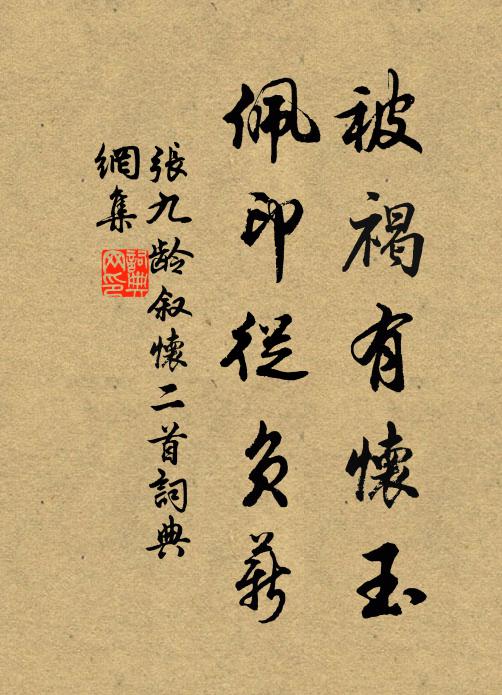 被褐有懷玉
佩印從負薪
張九龄叙懷二首詞典
網集
詞典
网印